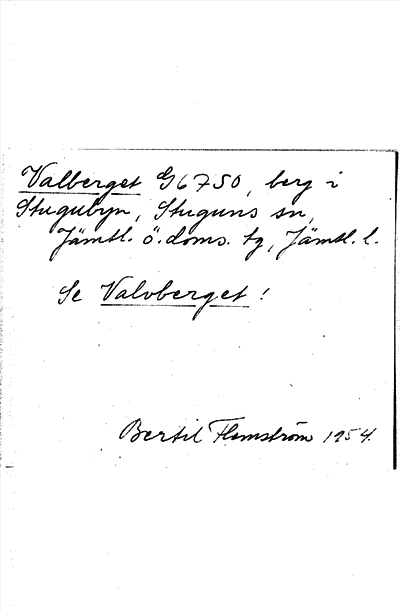 Valberget G6750, berg i
Stugubyn, Stuguns sn,
Jämtl. ö. doms. tg, Jämtl. l.
Se Valvberget!
Bertil Flemström 1954.